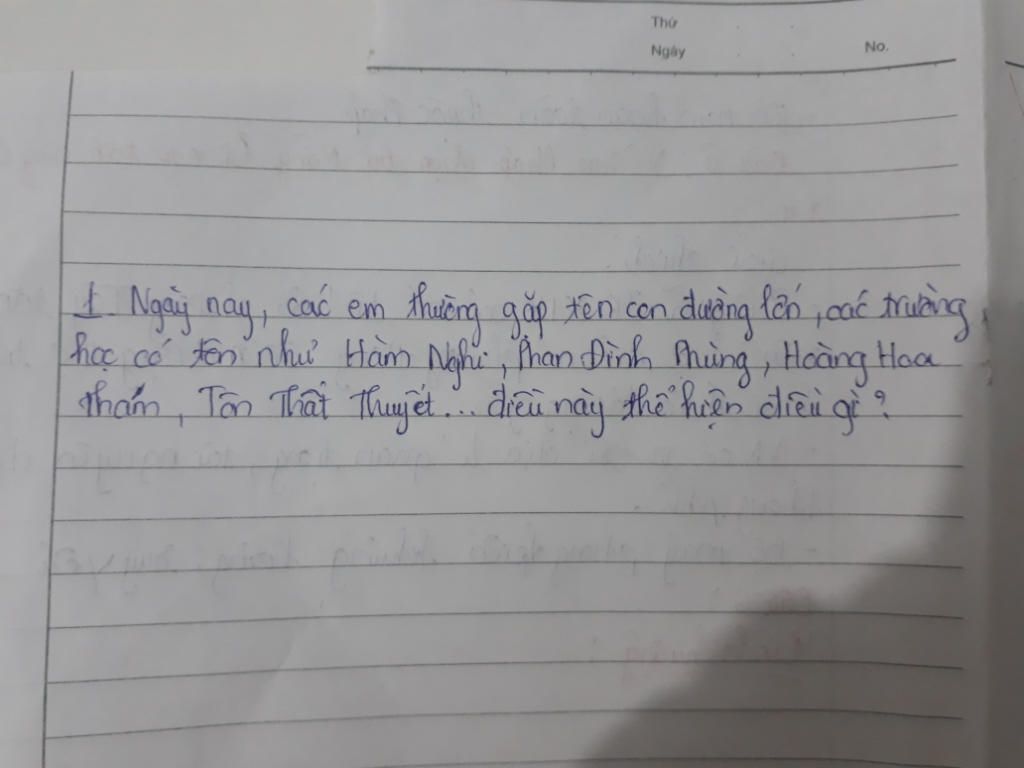 Thứ
Ngày No.
1 Ngày nay, các em thường gặp tên con đường lớn, các trường
học có tên như Hàm Nghi, Phan Đình Phùng, Hoàng Hoa
thám, Tôn Thất Thuyết... điều này thể hiện điều gì?